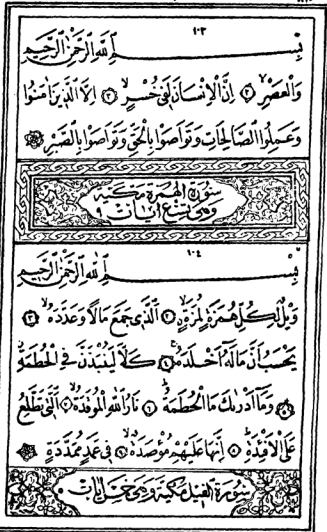 ١٠٣
بِسْمِ اللهِ الرَّحْمٰنِ الرَّحِيمِ
وَالْعَصْرِ ۙ ١ اِنَّ الْاِنْسَانَ لَفِى خُسْرٍ ۙ ٢ اِلَّا الَّذِينَ اٰمَنُوا
وَعَمِلُوا الصَّالِحَاتِ وَتَوَاصَوْا بِالْحَقِّ وَتَوَاصَوْا بِالصَّبْرِ
سُورَةُ الْهُمَزَةِ مَكِّيَّةٌ
وَهِىَ تِسْعُ اٰيَاتٍ
١٠٤
بِسْمِ اللهِ الرَّحْمٰنِ الرَّحِيمِ
وَيْلٌ لِكُلِّ هُمَزَةٍ لُمَزَةٍ ۙ ١ اَلَّذِى جَمَعَ مَالًا وَعَدَّدَهُ ۙ ٢
يَحْسَبُ اَنَّ مَالَهُ اَخْلَدَهُ ۚ ٣ كَلَّا لَيُنْبَذَنَّ فِى الْحُطَمَةِ ۘ
٤ وَمَا اَدْرٰيكَ مَا الْحُطَمَةُ ۜ ٥ نَارُ اللهِ الْمُوقَدَةُ ۙ ٦ اَلَّتِى تَطَّلِعُ
عَلَى الْاَفْـِٔدَةِ ۜ ٧ اِنَّهَا عَلَيْهِمْ مُؤْصَدَةٌ ۙ ٨ فِى عَمَدٍ مُمَدَّدَةٍ
سُورَةُ الْفِيلِ مَكِّيَّةٌ وَهِىَ خَمْسُ اٰيَاتٍ